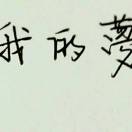 我的夢